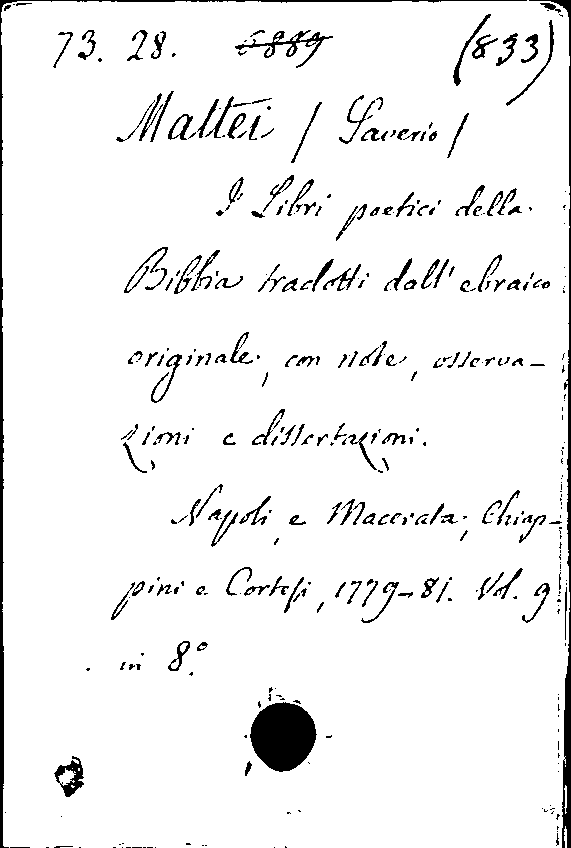 73. 28. 6889 (833)
Mattei / Saverio /
I Libri poetici della
Bibbia tradotti dall' ebraico
originale, con note, osserva-
zioni e dissertazioni.
Napoli, e Macerata, Chiap-
pini e Cortesi, 1779-81. Vol. 9
in 8.°